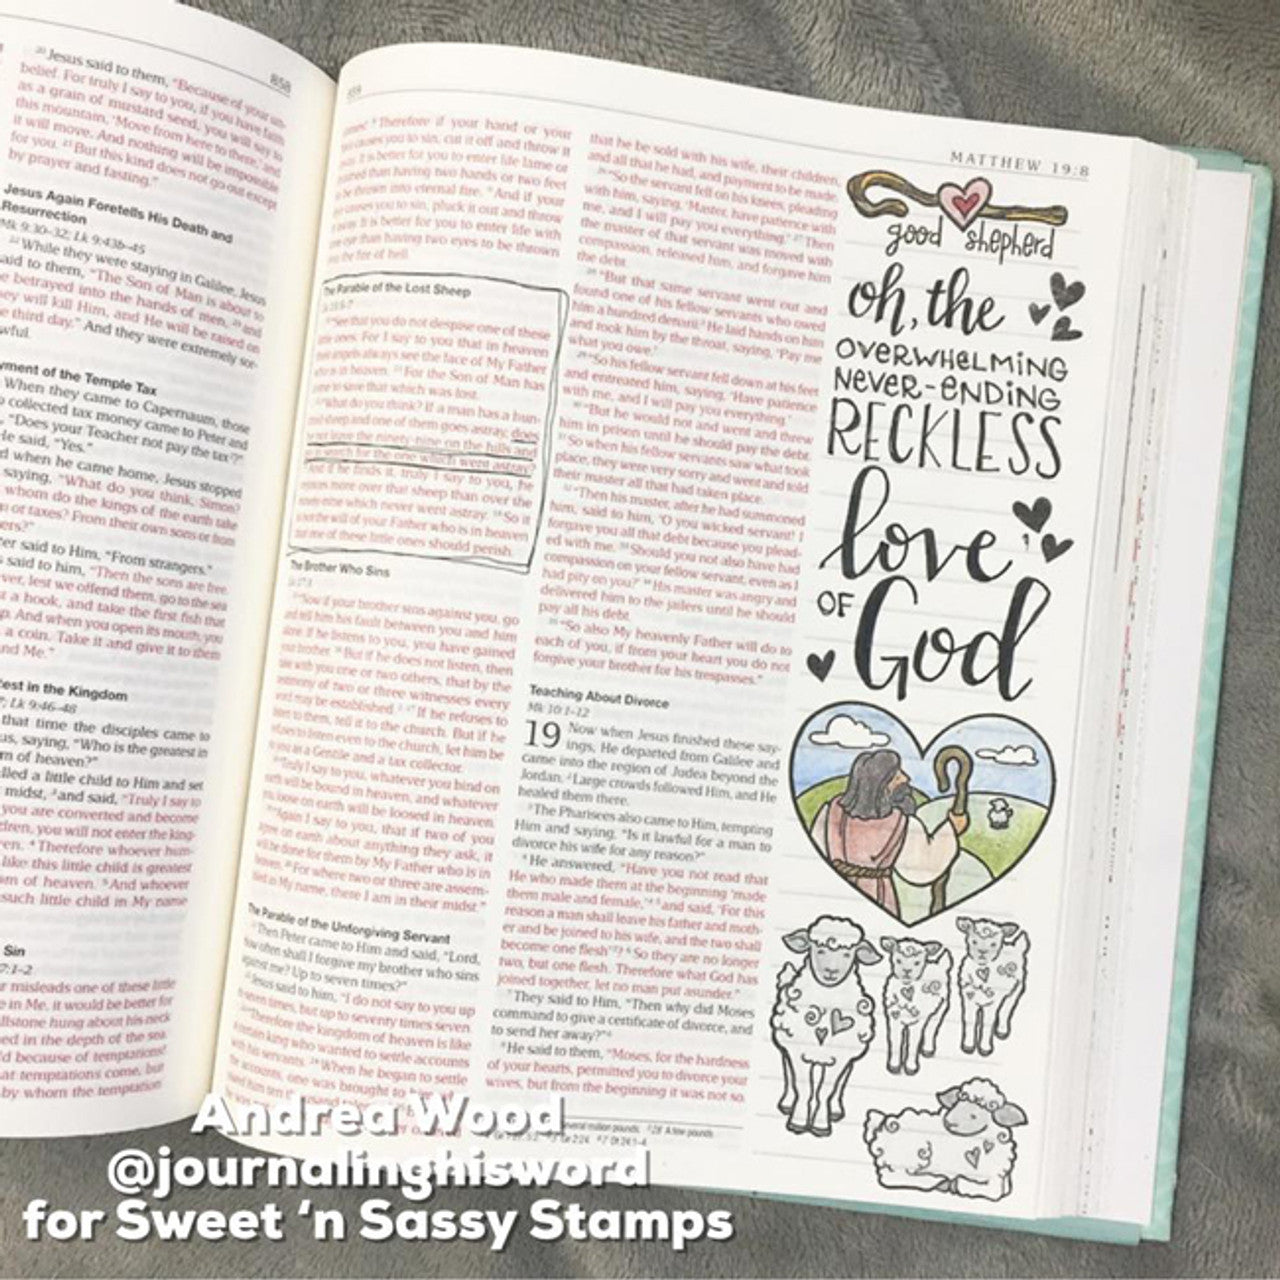 858
20 Jesus said to them, "Because of your un-
belief. For truly I say to you, if you have faith
as a grain of mustard seed, you will say to
this mountain, 'Move from here to there,' and
it will move. And nothing will be impossible
for you. 21 But this kind does not go out except
by prayer and fasting."
Jesus Again Foretells His Death and
Resurrection
Mk 9:30–32; Lk 9:43b–45
22 While they were staying in Galilee, Jesus
said to them, "The Son of Man is about to
be betrayed into the hands of men, 23 and
they will kill Him, and He will be raised on
the third day." And they were extremely sor-
Temple Tax
When they came to Capernaum, those
collected tax money came to Peter and
"Does your Teacher not pay the tax?"
He said, "Yes."
when he came home, Jesus stopped
saying, "What do you think, Simon?
whom do the kings of the earth take
or taxes? From their own sons or from
said to Him, "From strangers."
said to him, "Then the sons are free.
lest we offend them, go to the sea
a hook, and take the first fish that
And when you open its mouth, you
a coin. Take it and give it to them
and Me."
in the Kingdom
Lk 9:46–48
that time the disciples came to
saying, "Who is the greatest in
of heaven?"
called a little child to Him and set
midst, 3 and said, "Truly I say to
you are converted and become
you will not enter the king-
4 Therefore whoever hum-
like this little child is greatest
of heaven. 5 And whoever
such little child in My name
Sin
misleads one of these little
in Me, it would be better for
hung about his neck
in the depth of the sea.
because of temptations!
temptations come, but
by whom the temptation
859
MATTHEW 19:8
8 Therefore if your hand or your
causes you to sin, cut it off and throw it
away. It is better for you to enter life lame or
maimed than having two hands or two feet
to be thrown into eternal fire. 9 And if your
eye causes you to sin, pluck it out and throw
it away. It is better for you to enter life with
one eye than having two eyes to be thrown
into the fire of hell.
The Parable of the Lost Sheep
10 "See that you do not despise one of these
little ones. For I say to you that in heaven
their angels always see the face of My Father
who is in heaven. 11 For the Son of Man has
come to save that which was lost.
12 "What do you think? If a man has a hun-
dred sheep and one of them goes astray, does
he not leave the ninety-nine on the hills and
go in search for the one which went astray?
13 And if he finds it, truly I say to you, he
rejoices more over that sheep than over the
ninety-nine which never went astray. 14 So it
is not the will of your Father who is in heaven
that one of these little ones should perish.
The Brother Who Sins
Lk 17:3
15 "Now if your brother sins against you, go
and tell him his fault between you and him
alone. If he listens to you, you have gained
your brother. 16 But if he does not listen, then
take with you one or two others, that by the
testimony of two or three witnesses every
word may be established. 17 If he refuses to
listen to them, tell it to the church. But if he
refuses to listen even to the church, let him be
to you as a Gentile and a tax collector.
18 "Truly I say to you, whatever you bind on
earth will be bound in heaven, and whatever
you loose on earth will be loosed in heaven.
19 "Again I say to you, that if two of you
agree on earth about anything they ask, it
will be done for them by My Father who is in
heaven. 20 For where two or three are assem-
bled in My name, there I am in their midst."
The Parable of the Unforgiving Servant
21 Then Peter came to Him and said, "Lord,
how often shall I forgive my brother who sins
against me? Up to seven times?"
22 Jesus said to him, "I do not say to you up
to seven times, but up to seventy times seven.
23 "Therefore the kingdom of heaven is like
a certain king who wanted to settle accounts
with his servants. 24 When he began to settle
the accounts, one was brought to
that he be sold with his wife, their children,
and all that he had, and payment to be made.
26 "So the servant fell on his knees, pleading
with him, saying, 'Master, have patience with
me, and I will pay you everything.' 27 Then
the master of that servant was moved with
compassion, released him, and forgave him
the debt.
28 "But that same servant went out and
found one of his fellow servants who owed
him a hundred denarii. He laid hands on him
and took him by the throat, saying, 'Pay me
what you owe.'
29 "So his fellow servant fell down at his feet
and entreated him, saying, 'Have patience
with me, and I will pay you everything.'
30 "But he would not and went and threw
him in prison until he should pay the debt.
31 So when his fellow servants saw what took
place, they were very sorry and went and told
their master all that had taken place.
32 "Then his master, after he had summoned
him, said to him, 'O you wicked servant! I
forgave you all that debt because you plead-
ed with me. 33 Should you not also have had
compassion on your fellow servant, even as I
had pity on you?' 34 His master was angry and
delivered him to the jailers until he should
pay all his debt.
35 "So also My heavenly Father will do to
each of you, if from your heart you do not
forgive your brother for his trespasses."
Teaching About Divorce
Mk 10:1–12
19 Now when Jesus finished these say-
ings, He departed from Galilee and
came into the region of Judea beyond the
Jordan. 2 Large crowds followed Him, and He
healed them there.
3 The Pharisees also came to Him, tempting
Him and saying, "Is it lawful for a man to
divorce his wife for any reason?"
4 He answered, "Have you not read that
He who made them at the beginning 'made
them male and female,' 5 and said, 'For this
reason a man shall leave his father and moth-
er and be joined to his wife, and the two shall
become one flesh'? 6 So they are no longer
two, but one flesh. Therefore what God has
joined together, let no man put asunder."
7 They said to Him, "Then why did Moses
command to give a certificate of divorce, and
to send her away?"
8 He said to them, "Moses, for the hardness
of your hearts, permitted you to divorce your
wives, but from the beginning it was not so.
good shepherd
oh, the
OVERWHELMING
NEVER-ENDING
RECKLESS
love
OF God
Andrea Wood
@journalinghisword
for Sweet 'n Sassy Stamps